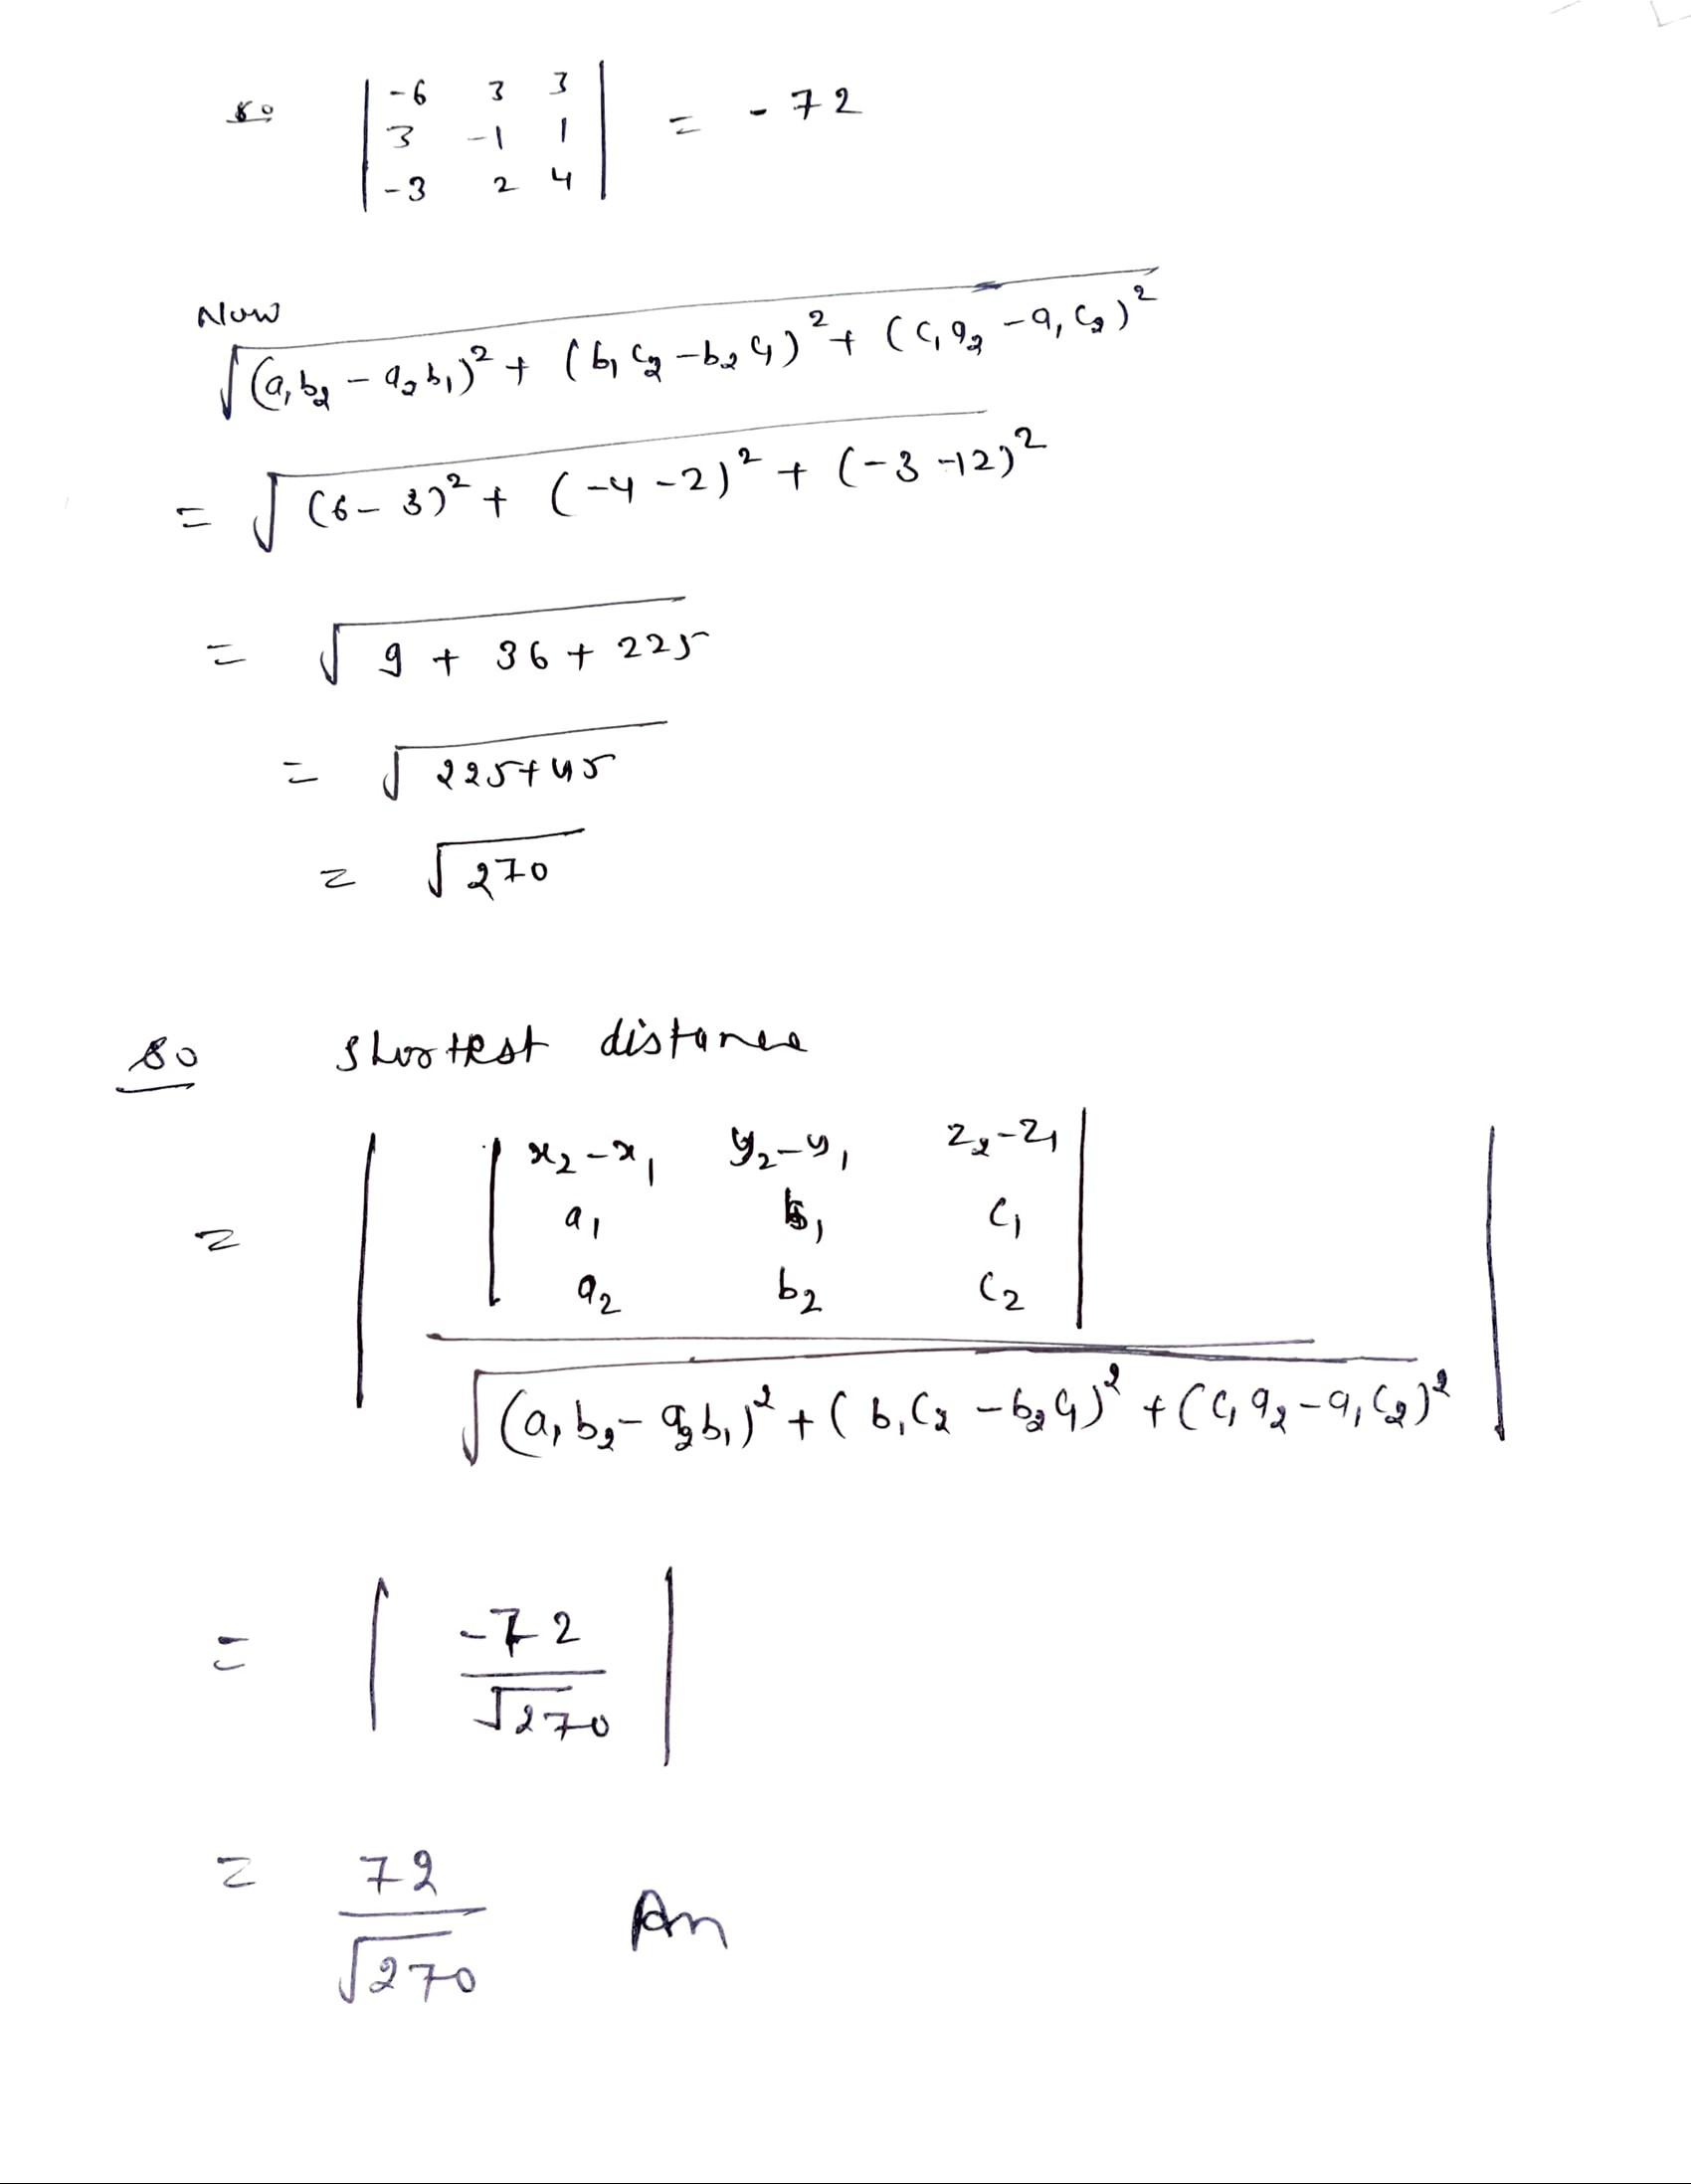 so | -6 3 3 |
| 3 -1 1 | = -72
| -3 2 4 |
Now
√(a₁b₂ - a₂b₁)² + (b₁c₂ - b₂c₁)² + (c₁a₂ - a₁c₂)²
= √(6-3)² + (-4-2)² + (-3-12)²
= √9 + 36 + 225
= √225+45
= √270
so shortest distance
| x₂-x₁ y₂-y₁ z₂-z₁ |
= | a₁ b₁ c₁ |
| a₂ b₂ c₂ |
√(a₁b₂ - a₂b₁)² + (b₁c₂ - b₂c₁)² + (c₁a₂ - a₁c₂)²
= | -72
√270 |
= 72
√270 An